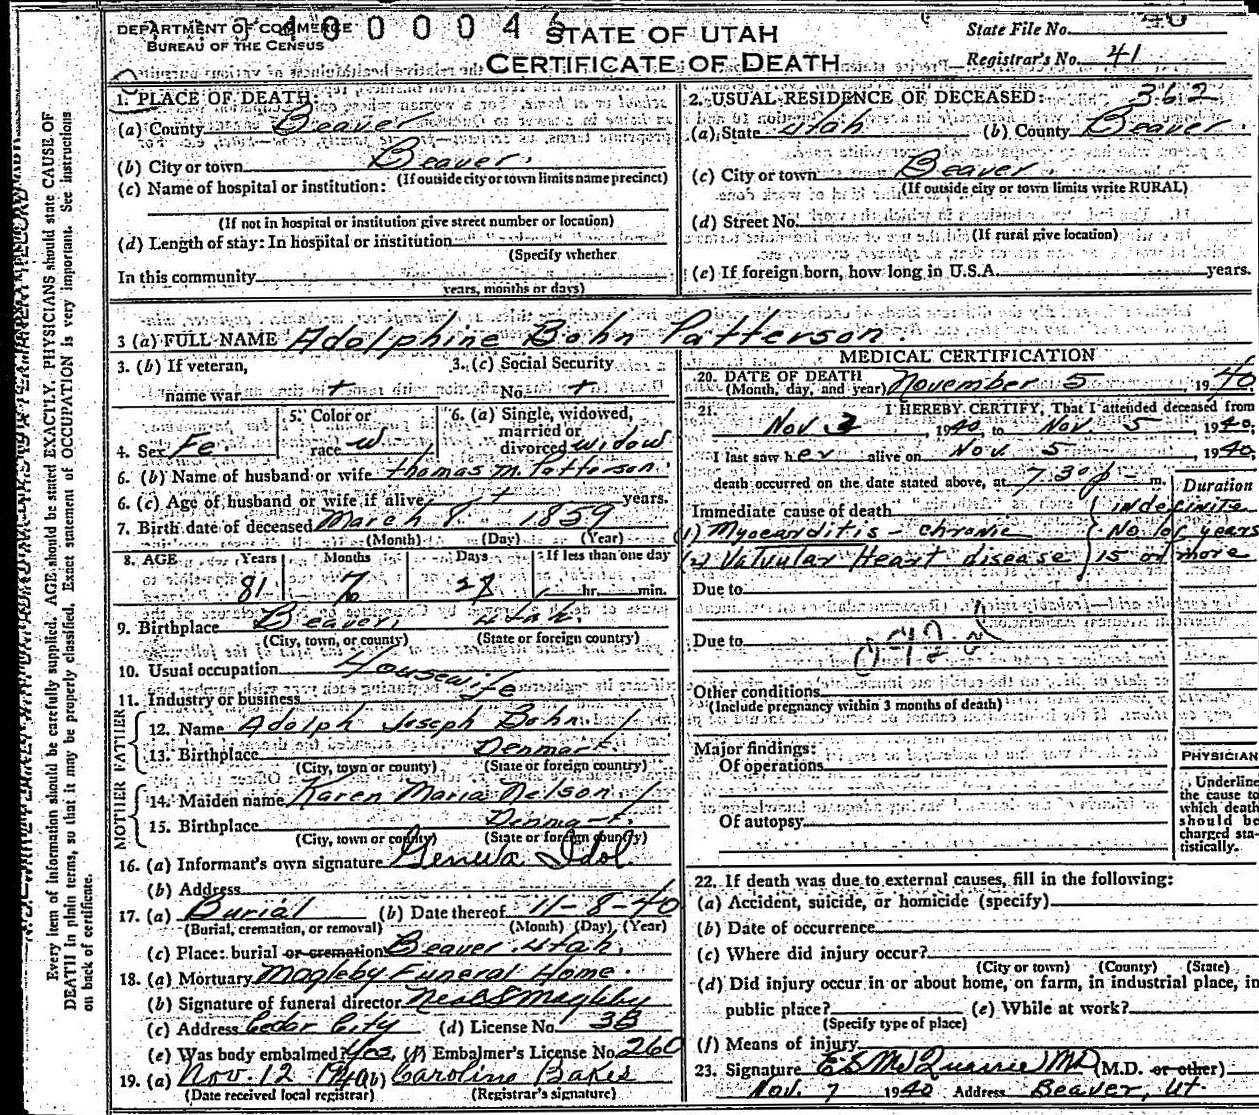 DEPARTMENT OF COMMERCE
BUREAU OF THE CENSUS
STATE OF UTAH
CERTIFICATE OF DEATH
State File No. 40
Registrar's No. 41
Every item of information should be carefully supplied. AGE should be stated EXACTLY. PHYSICIANS should state CAUSE OF
DEATH in plain terms, so that it may be properly classified. Exact statement of OCCUPATION is very important. See instructions
on back of certificate.
1. PLACE OF DEATH:
(a) County Beaver
(b) City or town Beaver.
(If outside city or town limits name precinct)
(c) Name of hospital or institution:
(If not in hospital or institution give street number or location)
(d) Length of stay: In hospital or institution
(Specify whether
In this community
years, months or days)
2. USUAL RESIDENCE OF DECEASED: 362
(a) State Utah (b) County Beaver.
(c) City or town Beaver.
(If outside city or town limits write RURAL)
(d) Street No.
(If rural give location)
(e) If foreign born, how long in U.S.A. years.
3 (a) FULL NAME Adolphine Bohn Patterson.
3. (b) If veteran, name war + 3. (c) Social Security No. +
4. Sex Fe. 5. Color or race W 6. (a) Single, widowed, married or divorced widow
6. (b) Name of husband or wife Thomas M. Patterson.
6. (c) Age of husband or wife if alive + years.
7. Birth date of deceased March 8. 1859
(Month) (Day) (Year)
8. AGE Years Months Days If less than one day
81 7 28 hr. min.
9. Birthplace Beaver, Utah.
(City, town, or county) (State or foreign country)
10. Usual occupation Housewife
11. Industry or business
FATHER
12. Name Adolph Joseph Bohn.
13. Birthplace Denmark
(City, town or county) (State or foreign country)
MOTHER
14. Maiden name Karen Maria Nelson
15. Birthplace Denmark.
(City, town or county) (State or foreign country)
16. (a) Informant's own signature Idol
(b) Address
17. (a) Burial (b) Date thereof 11-8-40
(Burial, cremation, or removal) (Month) (Day) (Year)
(c) Place: burial or cremation Beaver Utah.
18. (a) Mortuary Magleby Funeral Home.
(b) Signature of funeral director Neal S Magleby
(c) Address Cedar City (d) License No. 38
(e) Was body embalmed? Yes, (f) Embalmer's License No. 260
19. (a) Nov. 12 1940 (b) Caroline
(Date received local registrar) (Registrar's signature)
MEDICAL CERTIFICATION
20. DATE OF DEATH
(Month, day, and year) November 5, 1940.
21. I HEREBY CERTIFY, That I attended deceased from
Nov. 3, 1940, to Nov 5, 1940;
I last saw her alive on Nov. 5, 1940,
death occurred on the date stated above, at 7:30 p - m.
Duration
Immediate cause of death indefinite
(1) Myocarditis - chronic No. of years
(2) Valvular Heart disease 15 or more
Due to
Due to
Other conditions
(Include pregnancy within 3 months of death)
Major findings:
Of operations
Of autopsy
PHYSICIAN
Underline
the cause to
which death
should be
charged sta-
tistically.
22. If death was due to external causes, fill in the following:
(a) Accident, suicide, or homicide (specify)
(b) Date of occurrence
(c) Where did injury occur?
(City or town) (County) (State)
(d) Did injury occur in or about home, on farm, in industrial place, in
public place? (e) While at work?
(Specify type of place)
(f) Means of injury
23. Signature E S McQuarrie MD (M.D. or other)
Nov. 7 1940 Address Beaver, Ut.